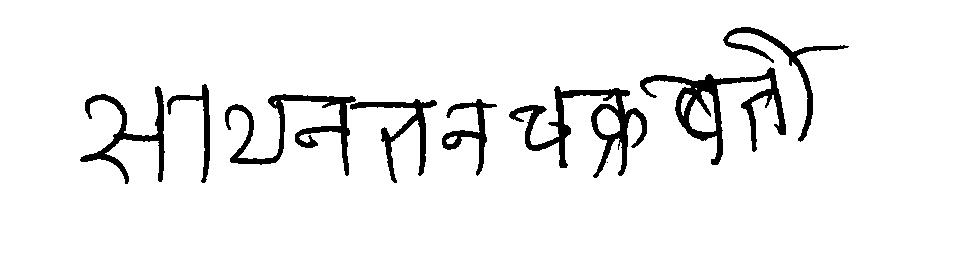 सायनतन चक्रबर्ती